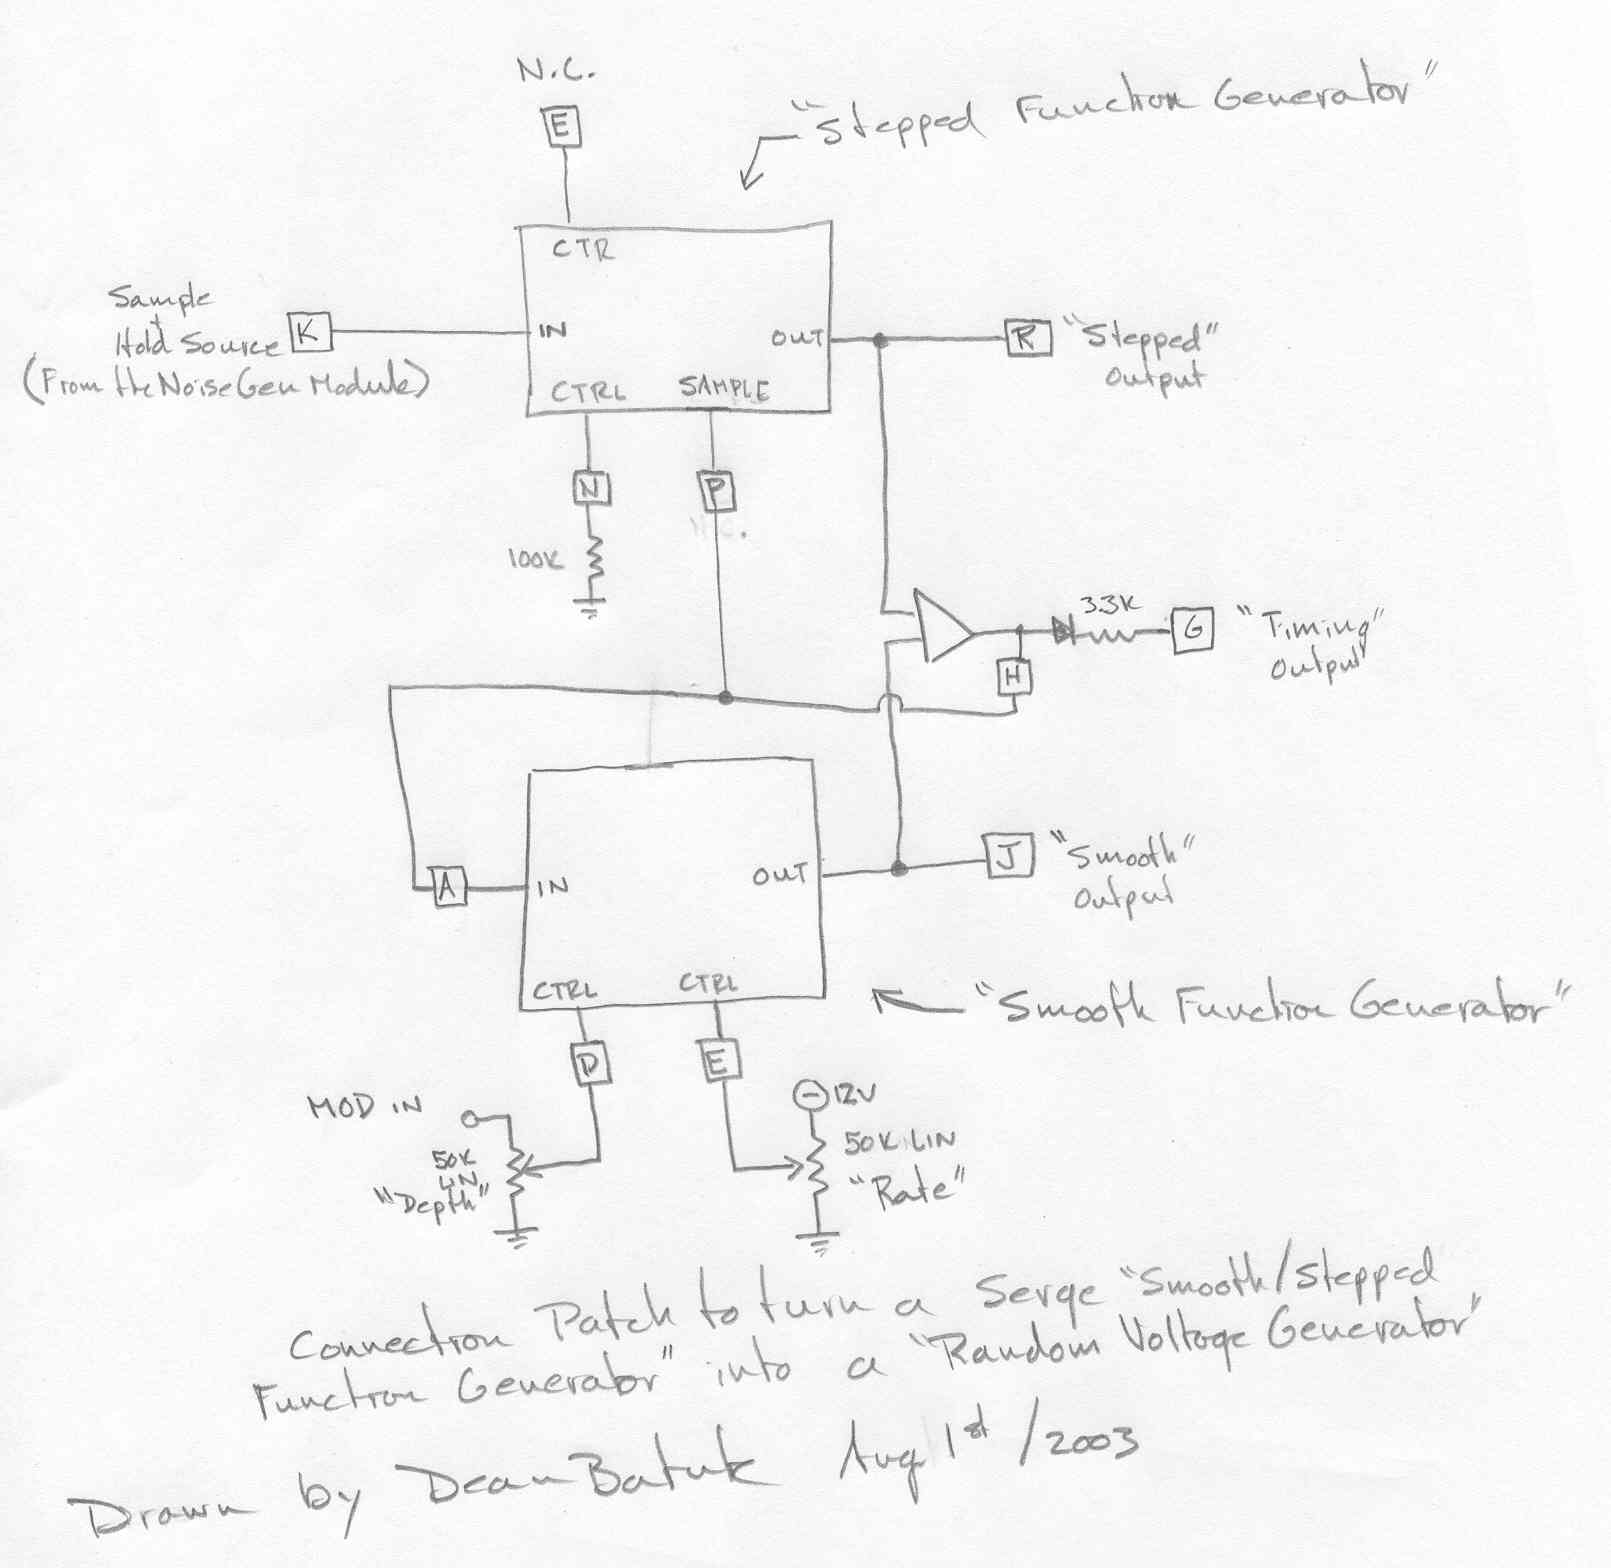 N.C.
E
"Stepped Function Generator"
CTR
Sample
+
Hold Source
(From the Noise Gen Module)
K
IN
OUT
R
"Stepped"
Output
CTRL
SAMPLE
N
P
100K
3.3K
G
"Timing"
Output
H
A
IN
OUT
J
"Smooth"
Output
CTRL
CTRL
"Smooth Function Generator"
D
E
MOD IN
50K
LIN
"Depth"
- 12V
50K LIN
"Rate"
Connection Patch to turn a Serge "Smooth/Stepped
Function Generator" into a "Random Voltage Generator"
Drawn by Dean Batuk Aug 1st /2003